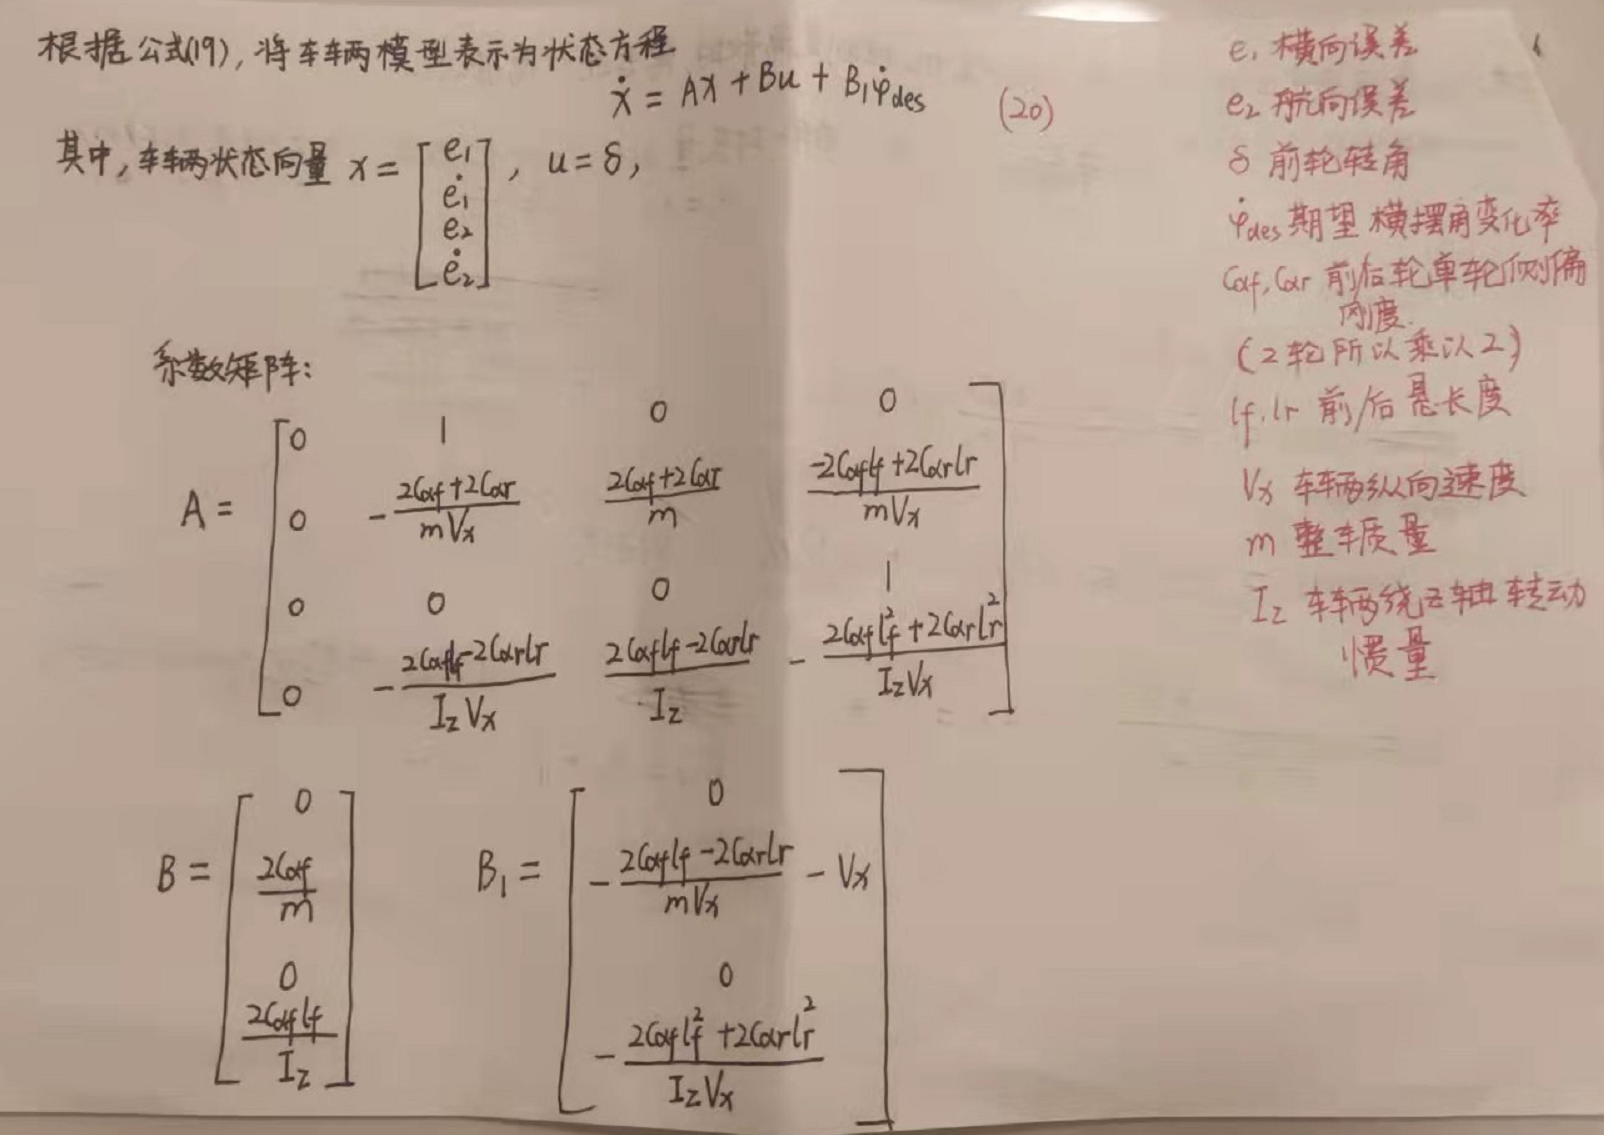 根据公式(19), 将车辆模型表示为状态方程
ẋ = Ax + Bu + B₁φ̇des (20)
其中, 车辆状态向量 x = [e₁ ė₁ e₂ ė₂], u = δ,
系数矩阵:
A = [0 1 0 0
0 -(2Cαf+2Cαr)/(mVx) (2Cαf+2Cαr)/m (-2Cαflf+2Cαrlr)/(mVx)
0 0 0 1
0 -(2Cαflf-2Cαrlr)/(IzVx) (2Cαflf-2Cαrlr)/Iz -(2Cαflf²+2Cαrlr²)/(IzVx)]
B = [0
2Cαf/m
0
2Cαflf/Iz]
B₁ = [0
-(2Cαflf-2Cαrlr)/(mVx) - Vx
0
-(2Cαflf²+2Cαrlr²)/(IzVx)]
e₁ 横向误差
e₂ 航向误差
δ 前轮转角
φ̇des 期望横摆角变化率
Cαf, Cαr 前后轮单轮侧偏
刚度.
(2轮所以乘以2)
lf, lr 前/后悬长度
Vx 车辆纵向速度
m 整车质量
Iz 车辆绕z轴转动
惯量